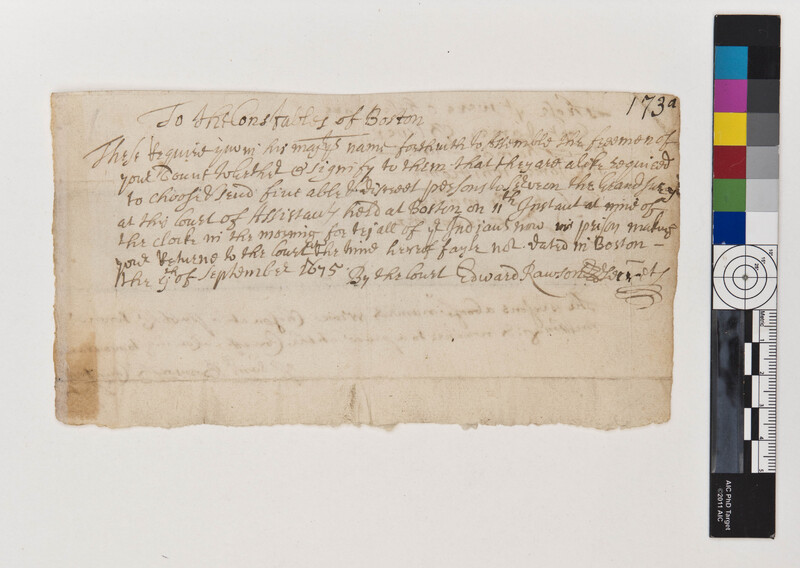 173a
To the Constables of Boston
These Require you in his majtys name forthwith to Assemble the freemen of
your Toune together & signify to them that they are alike required
to choose & send five able & discreet persons to serve on the Grand Jury
at this Court of Assistants held at Boston on 11th Instant at nine of
the clocke in the morning for tryall of ye Indians now in prison making
your Returne to the Court the time hereof fayle not dated in Boston
the 9th of September 1675 By the Court Edward Rawson Secrety
AIC PhD Target
©2011 AIC